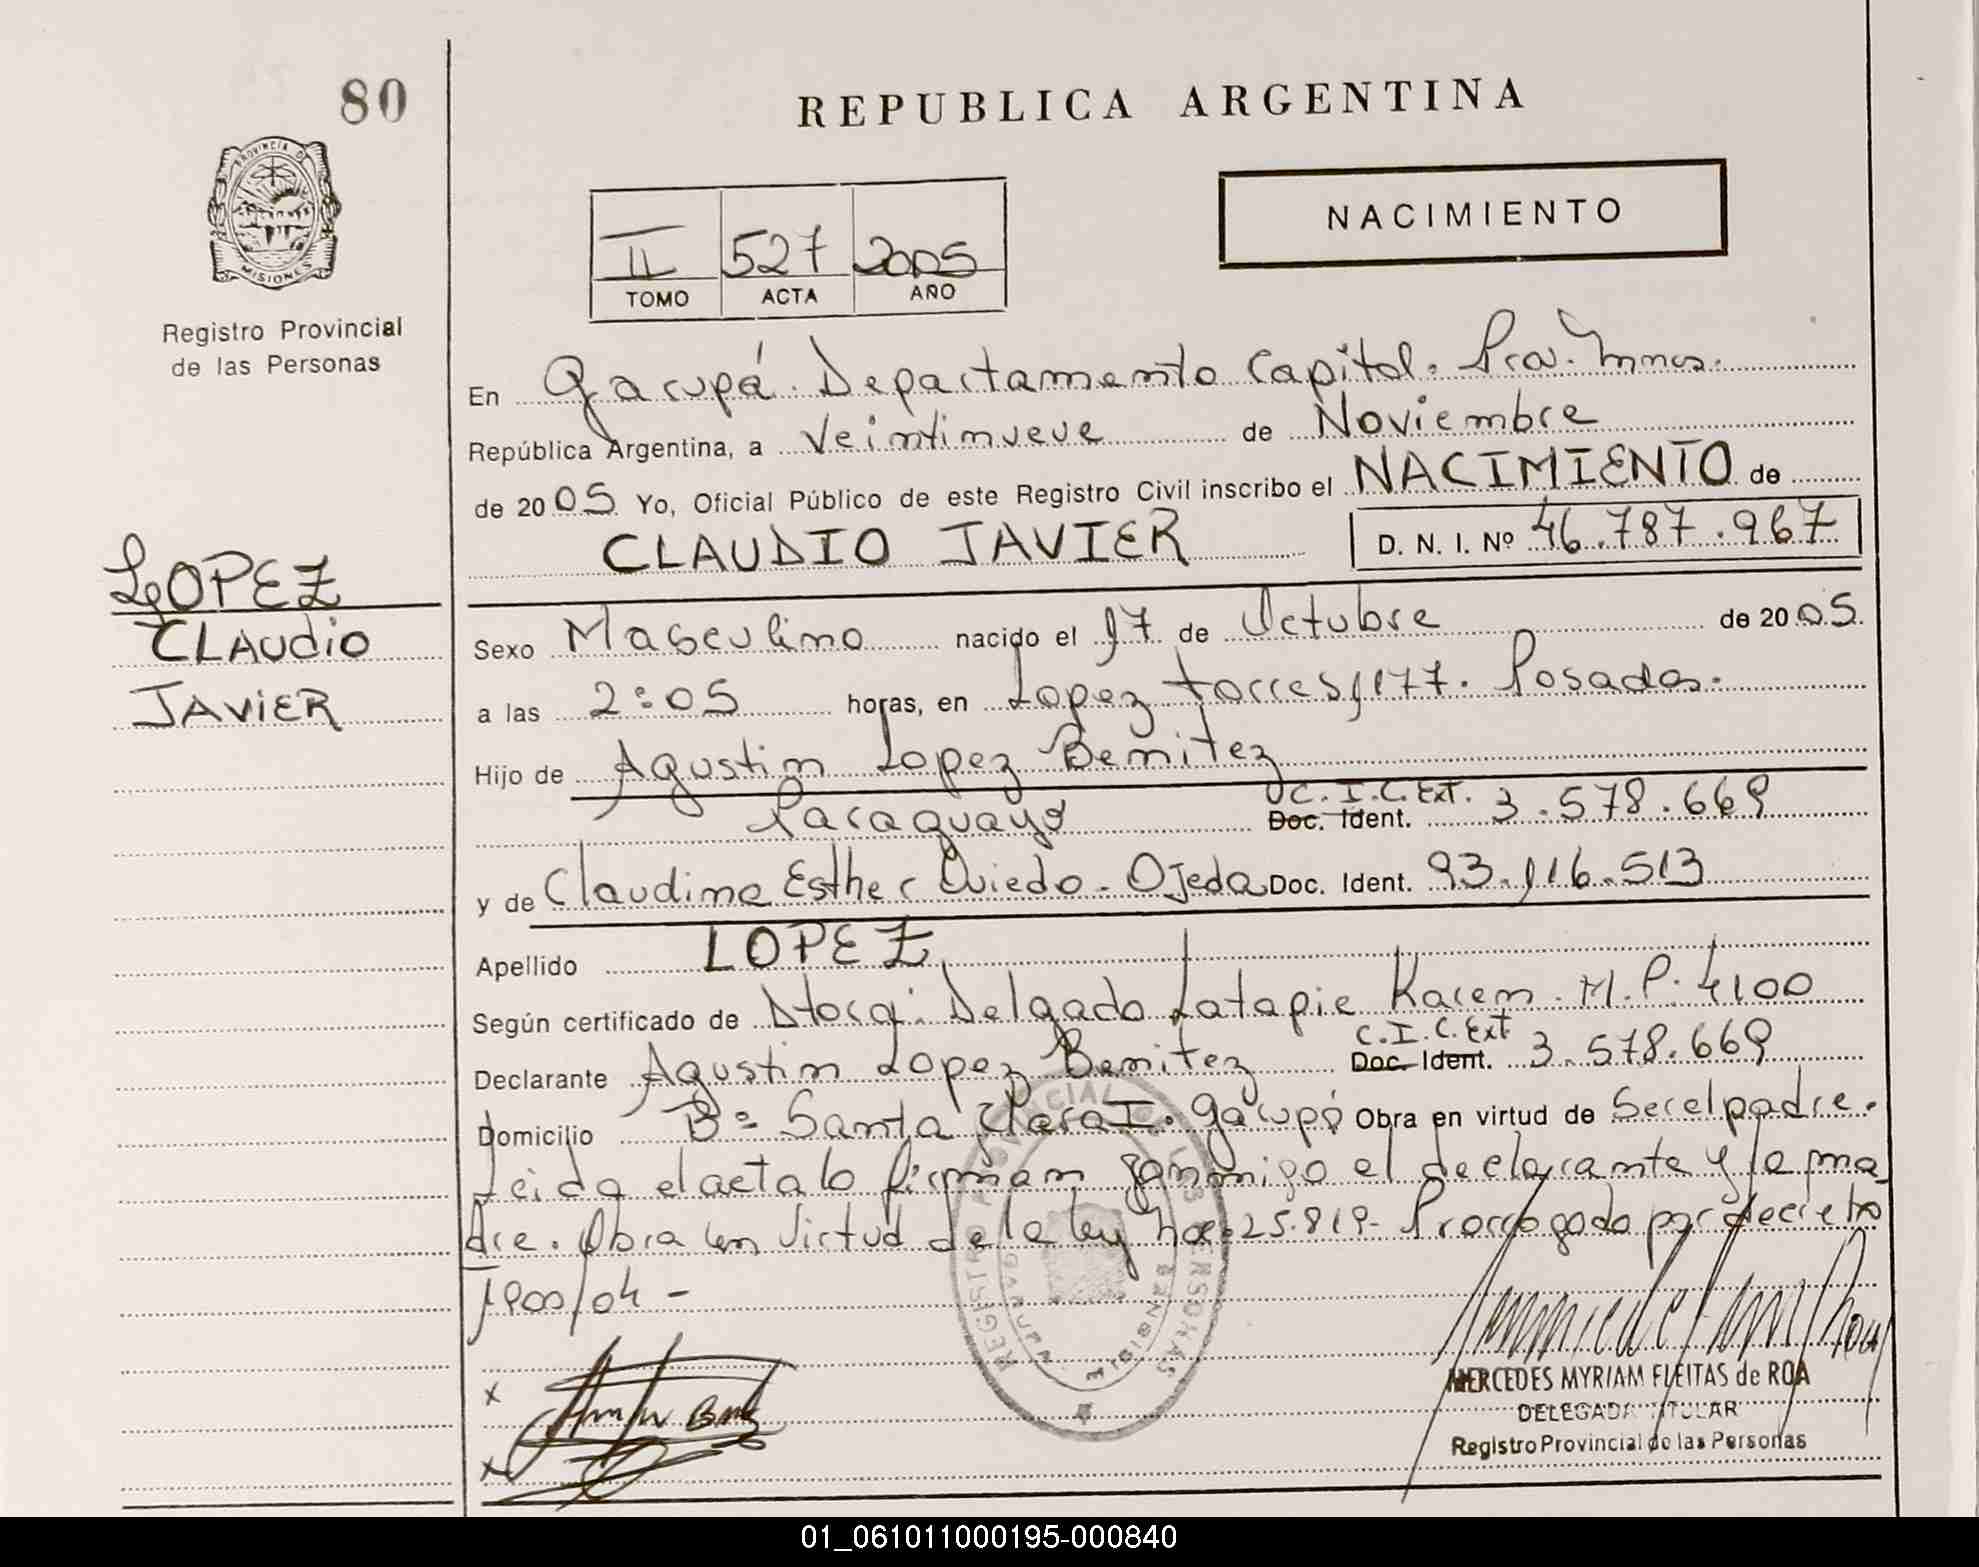 80
REPUBLICA ARGENTINA
PROVINCIA DE
MISIONES
Registro Provincial
de las Personas
NACIMIENTO
II 527 2005
TOMO ACTA AÑO
En Garupá. Departamento Capital. Pcia. Mnes.
República Argentina, a Veintinueve de Noviembre
de 2005 Yo, Oficial Público de este Registro Civil inscribo el NACIMIENTO de
CLAUDIO JAVIER D. N. I. Nº 46.787.967
LOPEZ
CLAUdio
JAViER
Sexo Masculino nacido el 17 de Octubre de 2005
a las 2:05 horas, en Lopez torres 1177. Posadas.
Hijo de Agustin Lopez Benitez
Paraguayo C.I.C. Ext. Doc. Ident. 3.578.669
y de Claudina Esther Oviedo. Ojeda Doc. Ident. 93.116.513
Apellido LOPEZ
Según certificado de Dtora. Delgado Latapie Karem. M.P. 4100
Declarante Agustin Lopez Benitez C.I.C. Ext Doc. Ident. 3.578.669
Domicilio Bº Santa Clara I. Garupá Obra en virtud de Ser el padre.
Leida el acta lo firman conmigo el declarante y la ma
dre. Obra en virtud de la ley nac. 25.819- Prorrogado por decreto
1900/04 -
x
x
REGISTRO PROVINCIAL DE LAS PERSONAS
MISIONES
MERCEDES MYRIAM FLEITAS de ROA
DELEGADA TITULAR
Registro Provincial de las Personas
01_061011000195-000840